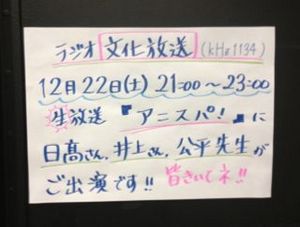 ラジオ 文化放送 (kHz1134)
12月22日(土) 21:00～23:00
生放送『アニスパ!』に
日髙さん、井上さん、公平先生が
ご出演です!! 皆きいてネ!!